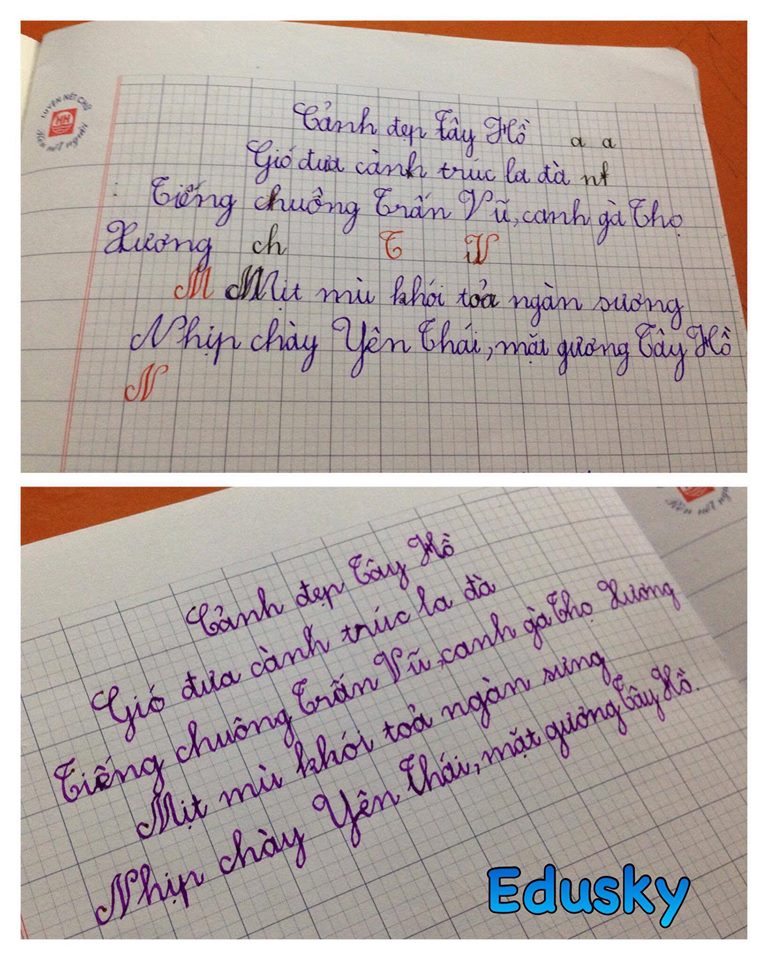 LUYỆN NÉT CHỮ
RÈN NẾT NGƯỜI
HH
Cảnh đẹp Tây Hồ a a
Gió đưa cành trúc la đà nh
Tiếng chuông Trấn Vũ, canh gà Thọ
Xương ch T V
M Mịt mù khói toả ngàn sương
Nhịp chày Yên Thái, mặt gương Tây Hồ
N
Cảnh đẹp Tây Hồ
Gió đưa cành trúc la đà
Tiếng chuông Trấn Vũ, canh gà Thọ Xương
Mịt mù khói toả ngàn sưng
Nhịp chày Yên Thái, mặt gương Tây Hồ.
Edusky